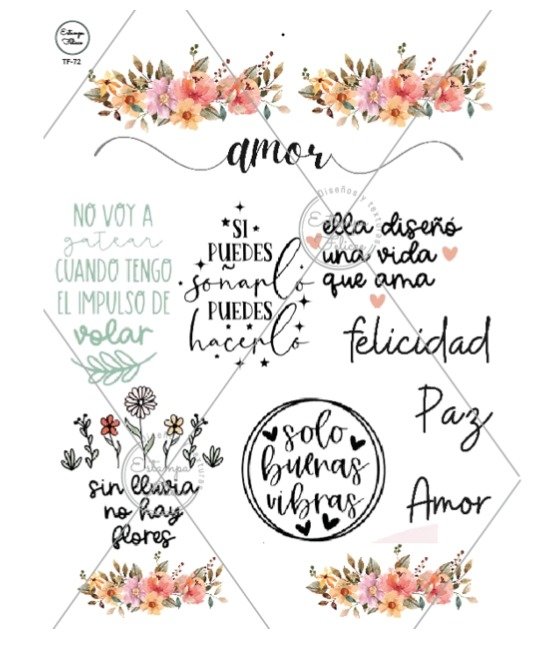 Estampa
Felices
TF-72
amor
NO VOY A
gatear
CUANDO TENGO
EL IMPULSO DE
volar
SI
PUEDES
soñarlo
PUEDES
hacerlo
ella diseñó
una vida
que ama
felicidad
Paz
Amor
solo
buenas
vibras
sin lluvia
no hay
flores